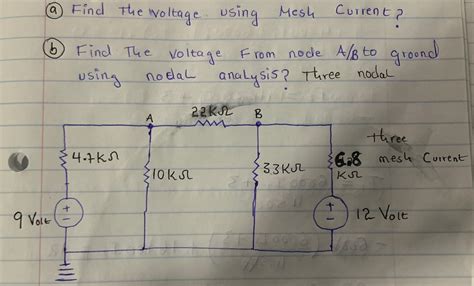 ⓐ Find The Voltage using Mesh Current?
ⓑ Find The Voltage From node A/B to ground
using nodal analysis? Three nodal
22KΩ
A
B
4.7KΩ
10KΩ
33KΩ
6.8
KΩ
Three
mesh Current
9 Volt
+
-
+
-
12 Volt